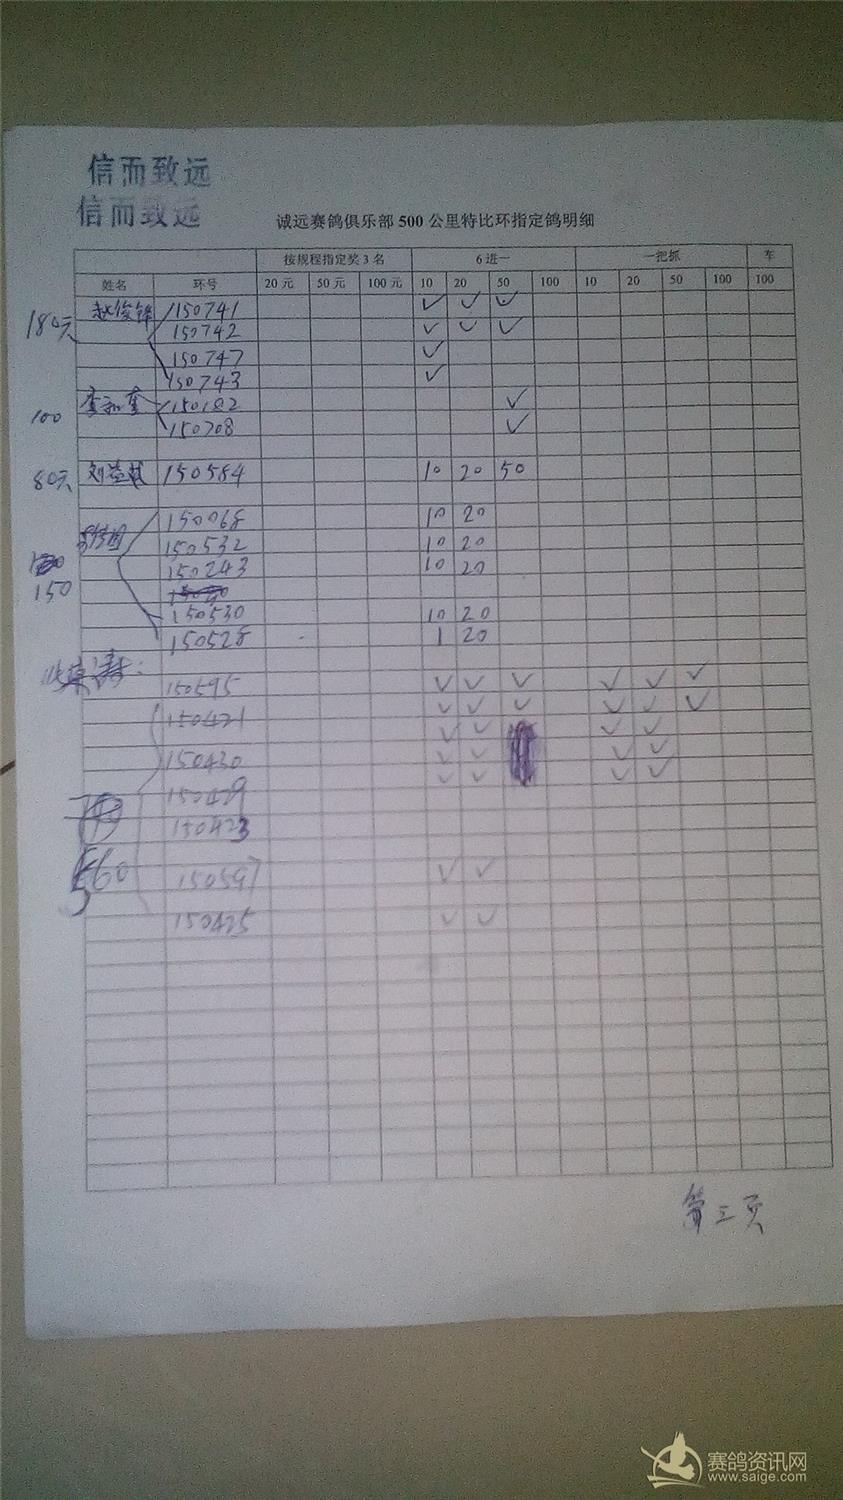 信而致远
信而致远
诚远赛鸽俱乐部 500 公里特比环指定鸽明细
按规程指定奖 3 名 6 进一 一把抓 车
姓名 环号 20 元 50 元 100 元 10 20 50 100 10 20 50 100 100
赵俊锋 150741 ✓ ✓ ✓
180元 150742 ✓ ✓ ✓
150747 ✓
150743 ✓
150182 ✓
100 150708 ✓
80元 150584 10 20 50
150068 10 20
150532 10 20
150243 10 20
150
150530 10 20
150528 1 20
150595 ✓ ✓ ✓ ✓ ✓ ✓
150421 ✓ ✓ ✓ ✓ ✓ ✓
✓ ✓ ✓ ✓
150430 ✓ ✓ ✓ ✓
150429 ✓ ✓ ✓ ✓
150423
560 150597 ✓ ✓
150425 ✓ ✓
第三页
赛鸽资讯网
www.saige.com